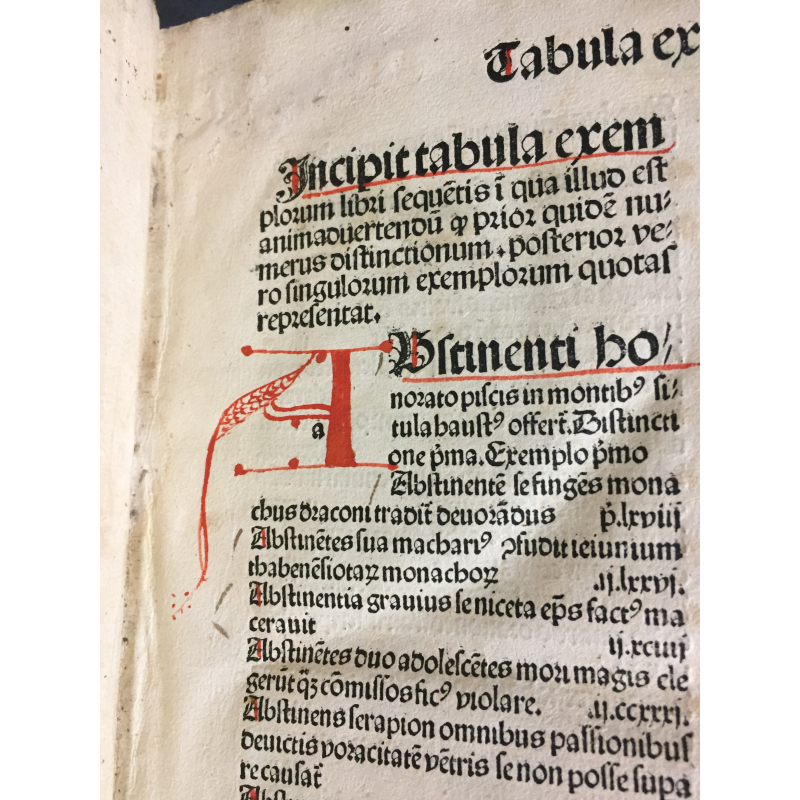 Tabula ex
Incipit tabula exem
plorum libri sequẽtis ĩ qua illud est
animaduertendũ ꝙ prior quidẽ nu⸗
merus distinctionum. posterior ve⸗
ro singulorum exemplorum quotas
representat.
ABstinenti ho⸗
norato piscis in montibꝰ si⸗
a
tula haustꝰ offert̃. Distincti
one p̃ma. Exemplo p̃mo
Abstinentẽ se fingẽs mona
chus draconi tradit̃ deuorãdus p̃.lxviij
Abstinẽtes sua macharіꝰ ꝯfudit ieiunium
thabenẽsiotaꝝ monachoꝝ .ij.lxxvj.
Abstinentia grauius se niceta ep̃s factꝰ ma
cerauit ij.xciiij
Abstinẽtes duo adolescẽtes mori magis ele
gerũt q̃ꝫ cõmissos ficꝰ violare. .ij.ccxxxj.
Abstinens serapion omnibus passionibus
deuictis voracitatẽ vẽtris se non posse supa
re causat̃